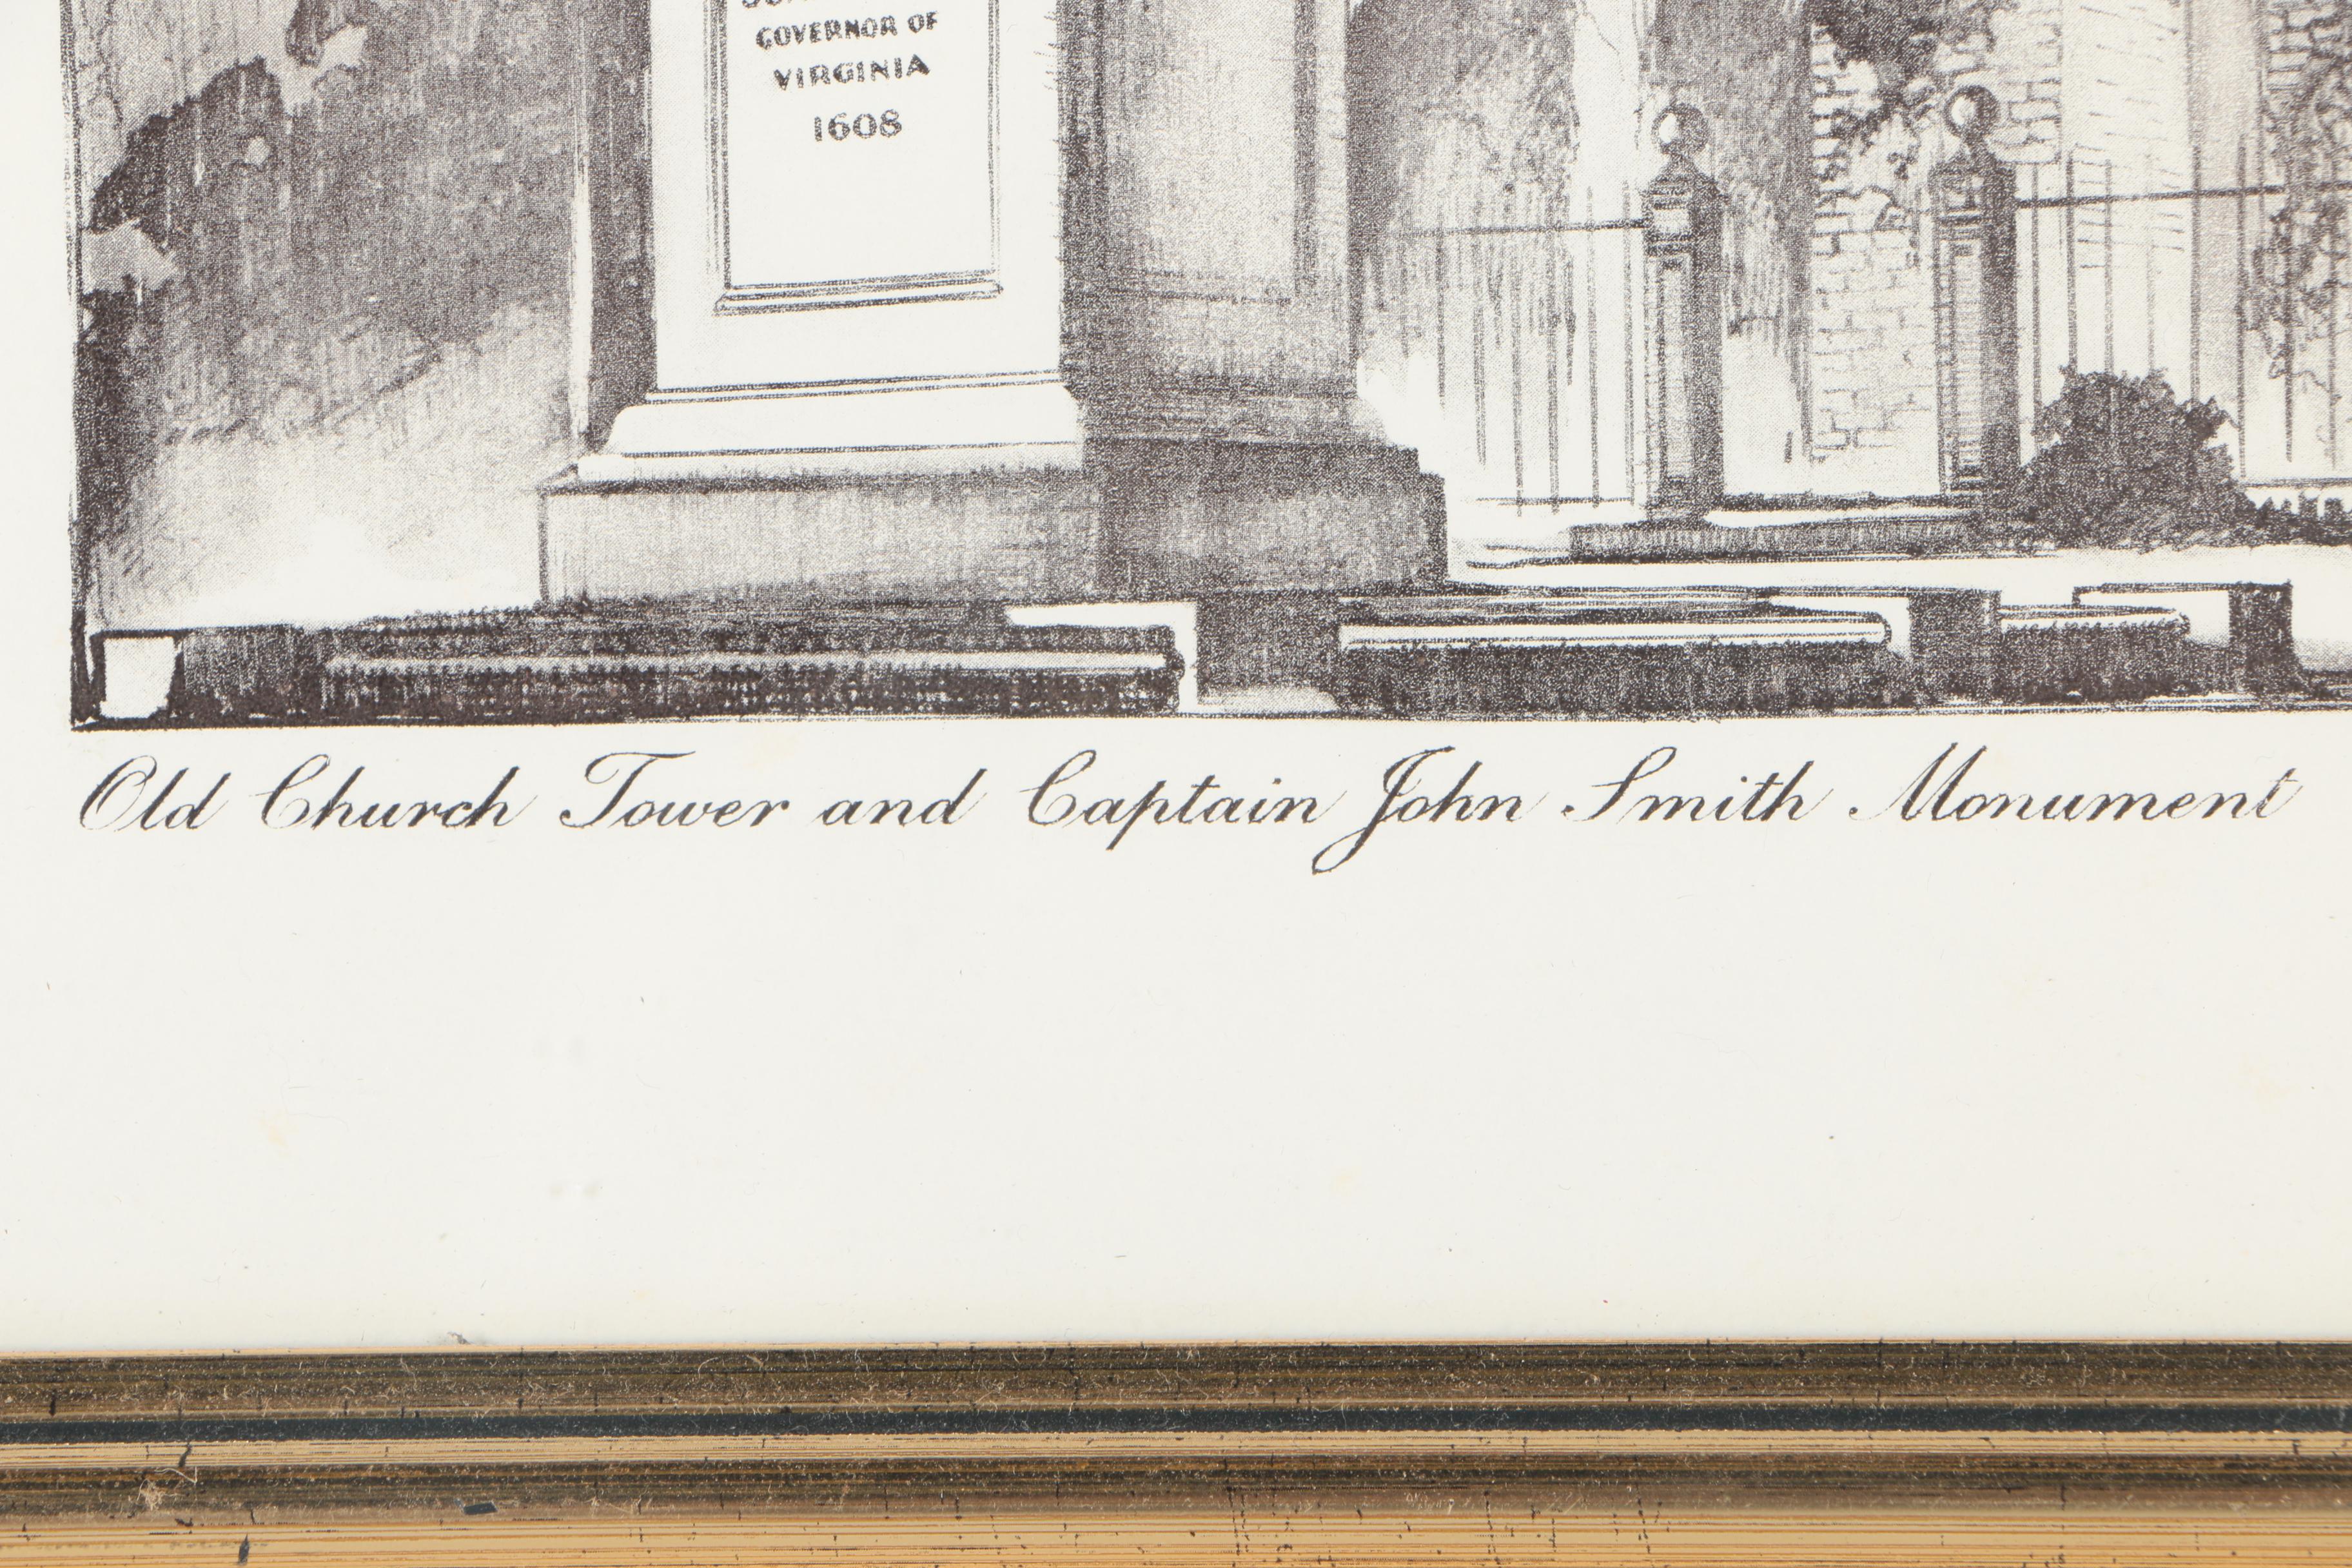 GOVERNOR OF
VIRGINIA
1608
Old Church Tower and Captain John Smith Monument